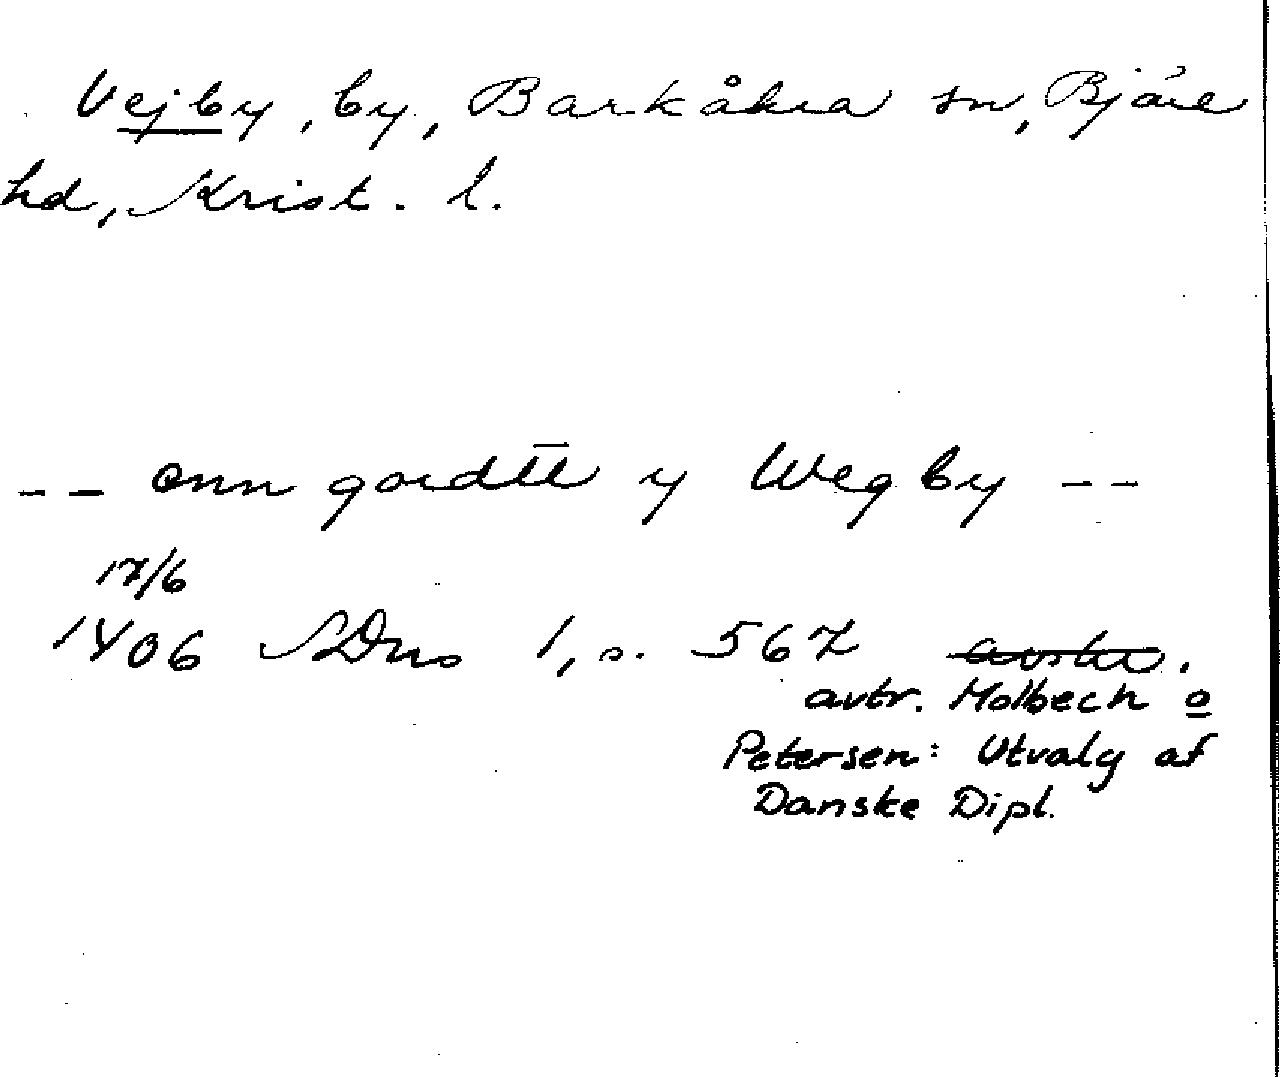 Vejby, by, Barkåkra sn, Bjäre
hd, Krist. l.
-- enn gordtll y Wegby --
17/6
1406 SDns 1, s. 567
avtr. Molbech o
Petersen: Utvalg af
Danske Dipl.